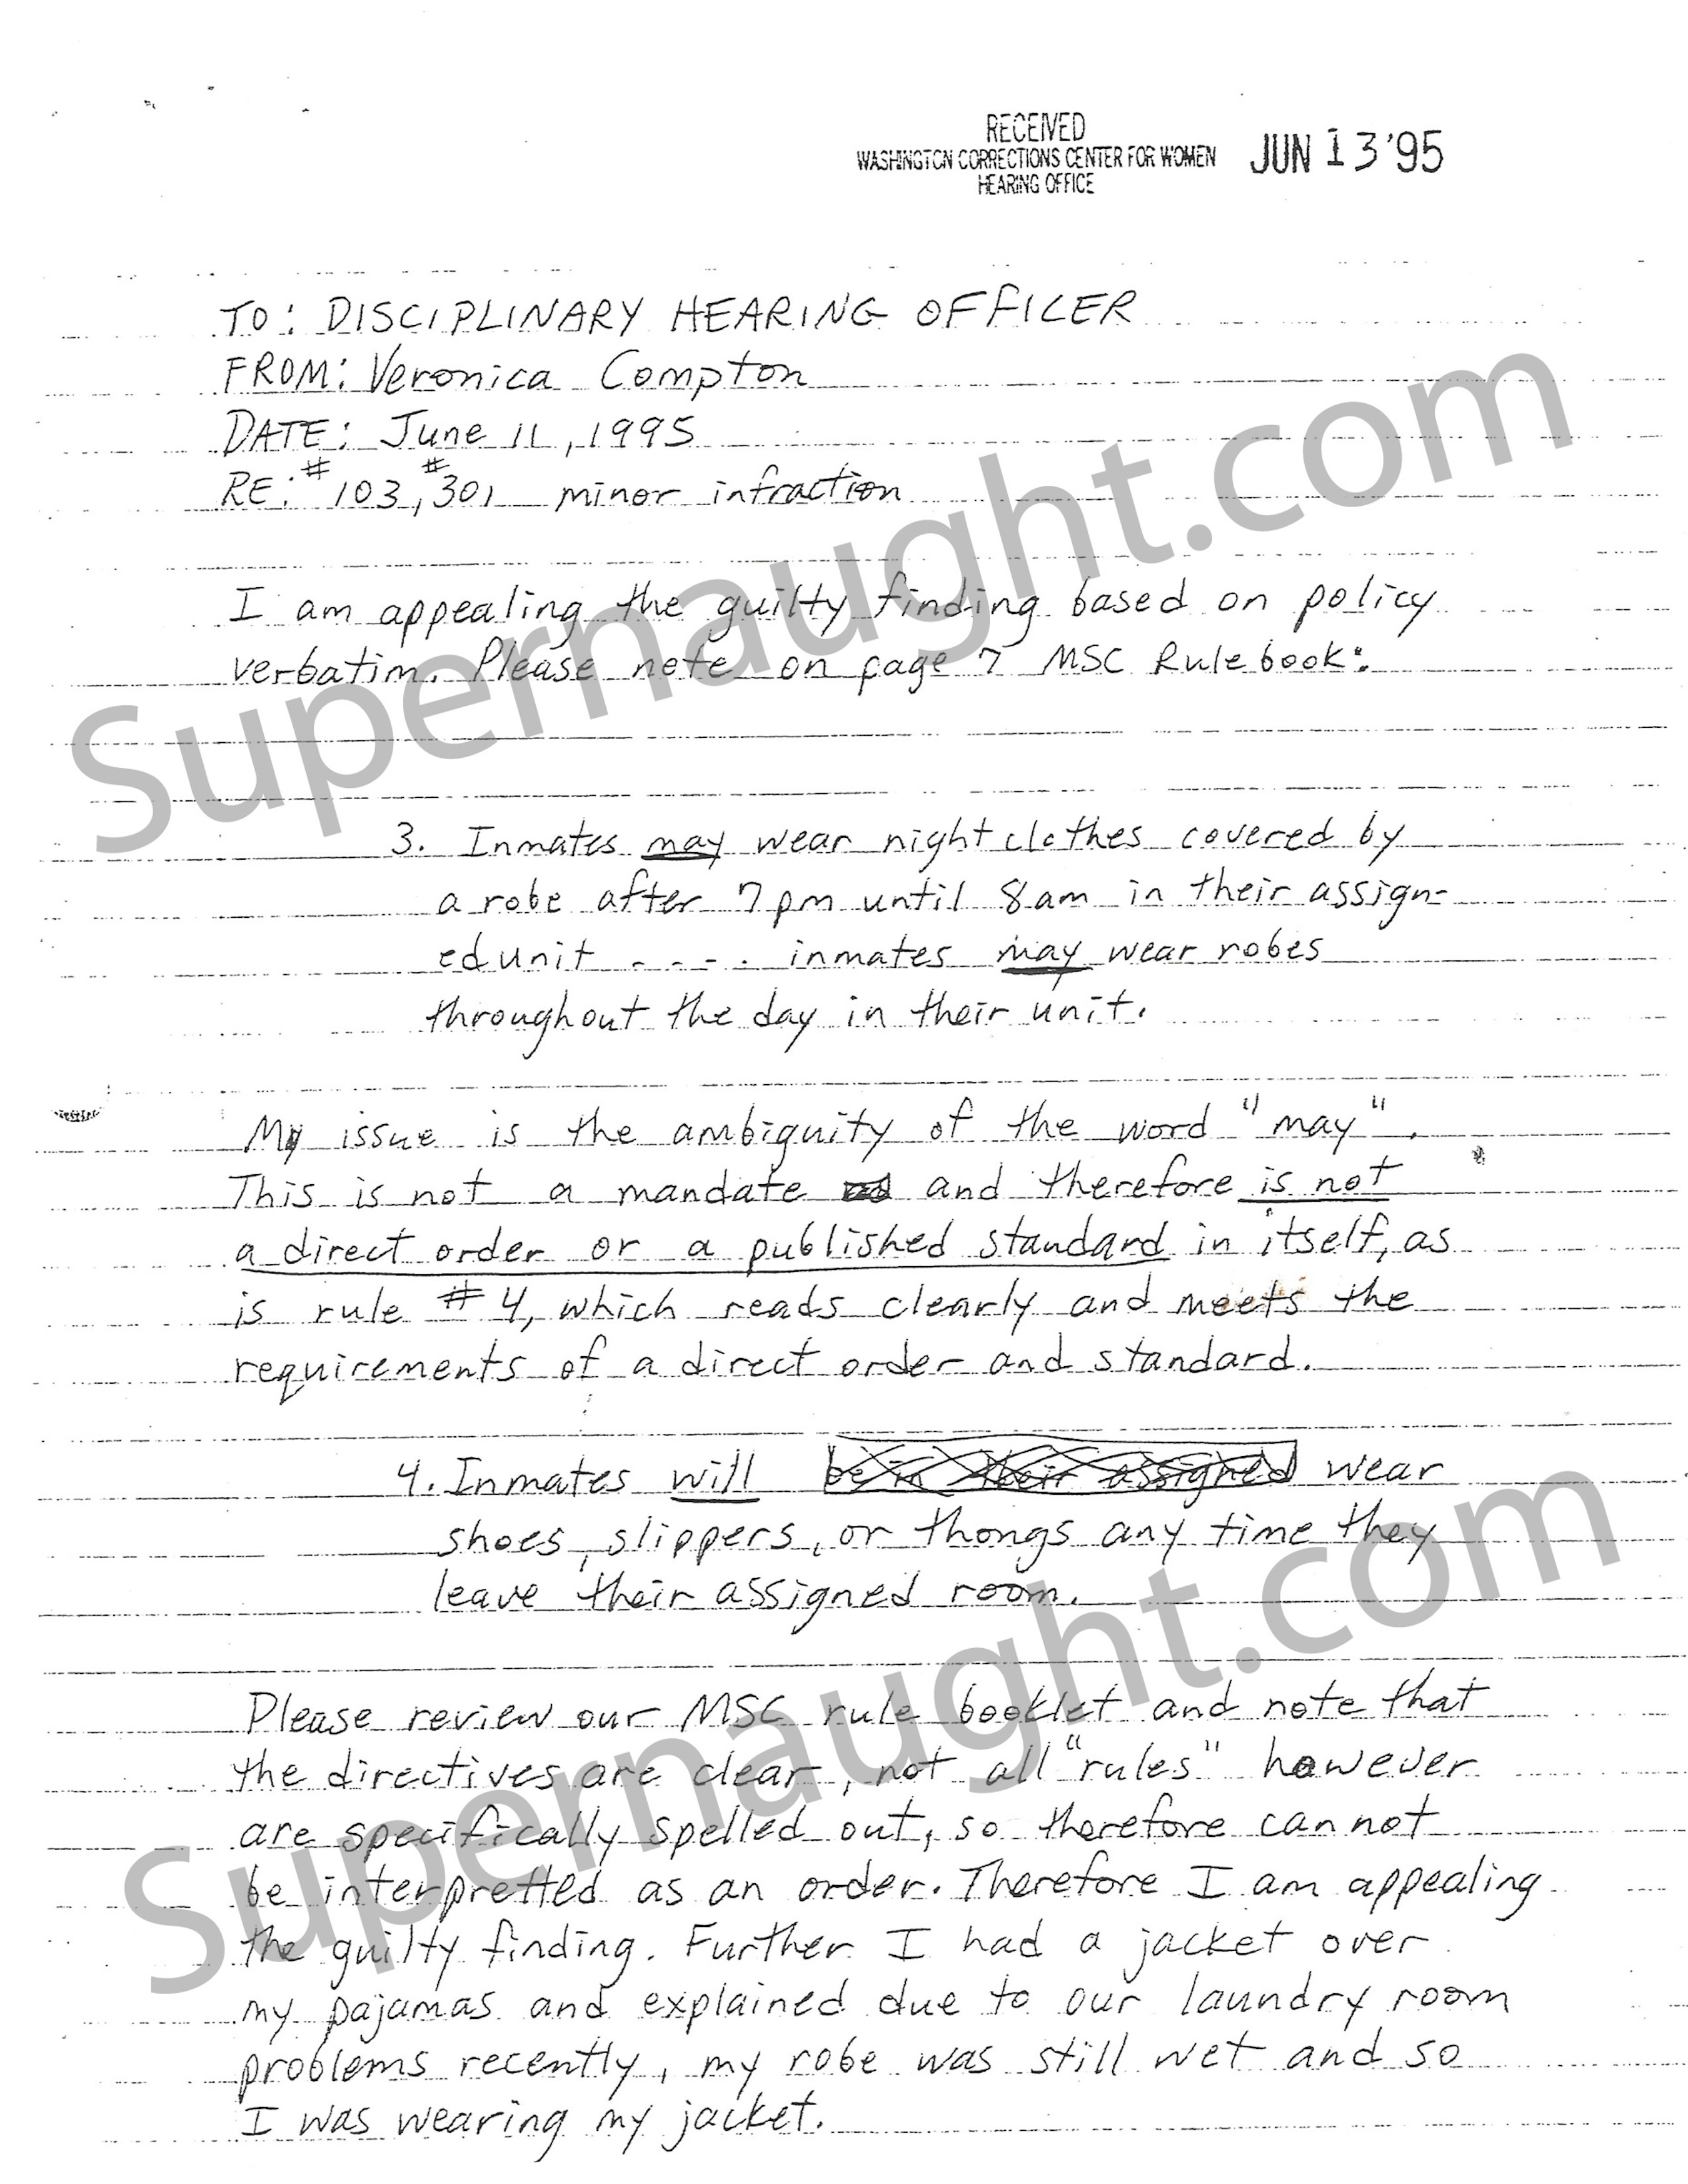 RECEIVED
WASHINGTON CORRECTIONS CENTER FOR WOMEN JUN 13 '95
HEARING OFFICE
TO: DISCIPLINARY HEARING OFFICER
FROM: Veronica Compton
DATE: June 11, 1995
RE: #103, #301 minor infraction
I am appealing the guilty finding based on policy
verbatim. Please note on page 7 MSC Rulebook:
3. Inmates may wear nightclothes covered by
a robe after 7pm until 8am in their assign-
ed unit .... inmates may wear robes
throughout the day in their unit.
My issue is the ambiguity of the word "may".
This is not a mandate and therefore is not
a direct order or a published standard in itself, as
is rule #4, which reads clearly and meets the
requirements of a direct order and standard.
4. Inmates will be in their assigned wear
shoes, slippers, or thongs any time they
leave their assigned room.
Please review our MSC rule booklet and note that
the directives are clear, not all "rules" however
are specifically spelled out, so therefore can not
be interpretted as an order. Therefore I am appealing
the guilty finding. Further I had a jacket over
my pajamas and explained due to our laundry room
problems recently, my robe was still wet and so
I was wearing my jacket.
Supernaught.com
Supernaught.com